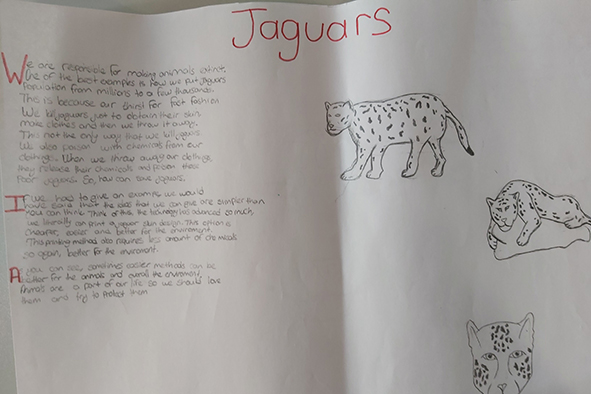 Jaguars
We are responsible for making animals extinct.
One of the best examples is how we put Jaguars
Population from millions to a few thousands.
This is because our thirst for fast fashion
We kill jaguars just to obtain their skin
make clothes and then we throw it away.
This not the only way that we kill jaguars
We also poison with chemicals from our
clothings. When we throw away our clothings,
they release their chemicals and poison these
Poor Jaguars. So, how can save jaguars.
If we had to give an example we would
have said that the ideas that we can give are simpler than
you can think. Think of this, the technology has advanced so much,
we literally can print a jaguar skin design. This option is
cheaper, easier and better for the environment.
This printing method also requires less amount of chemicals
so again, better for the environment.
As you can see, sometimes easier methods can be
better for the animals and overall the environment.
Animals are a part of our life so we should love
them and try to protect them